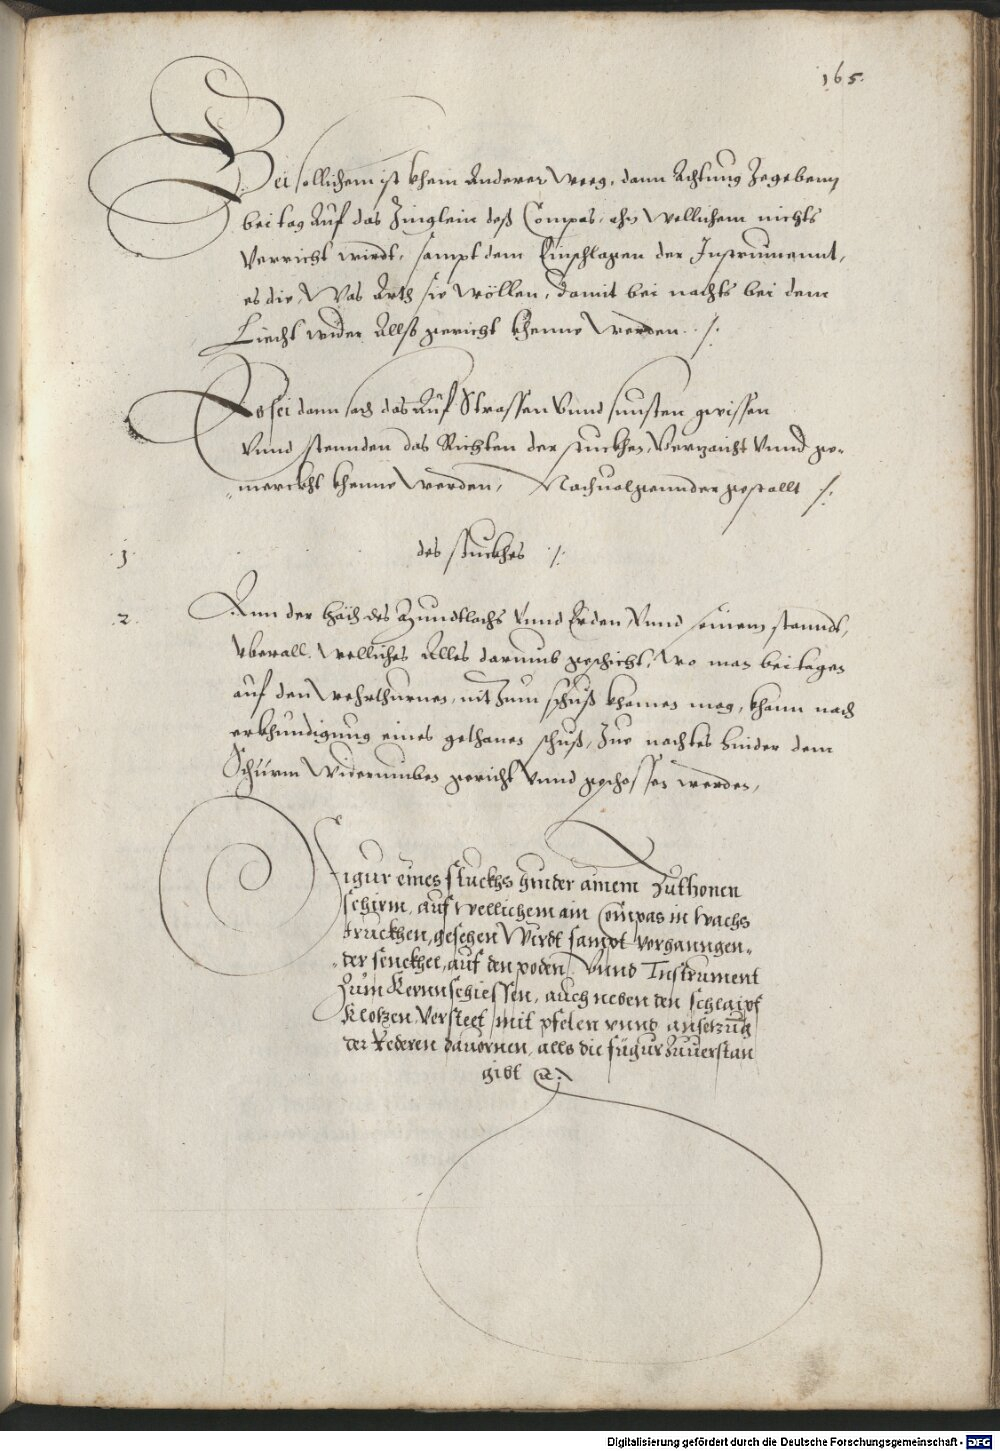 165.
Bei sollichem ist khain Anderer Weeg, dann Achtung Zegeben,
bei tag Auf das Zinglein deß Compas, ohn Wellichem nichts
Verricht wirdt, sampt dem Einschlagen der Instrumennt,
es die, Was Arth sie Wöllen, damit bei nachts bei dem
Liecht wider Allso gericht khenne Werden ./.
Es sei dann sach das Auf Strassen Vnnd sunsten gwissen
Vnnd stennden das Richten der stuckhen, Verzaicht Vnnd ge-
merckht khenne Werden, Nachuolgennder gestallt ./.
1. des stuckhes ./.
2. Ann der häch des Zundtlochs Vnnd Erden, Vnnd seinem stanndt,
Vberall. Welliches Alles darumb geschicht, Wo man bei tagen
auf den Wehrthurnen, nit Zum schuß khomen mag, khann nach
erkhundigung eines gethanen schuß, Zue nachtes hinder dem
Schürm Widerumben gericht Vnnd geschossen werden,
Figur eines stuckhs hinder ainem Zuthonen
schirm, auf wellichem ain Compas in Wachs
truckhen, gesehen Wirdt sampt vorganngen-
der senckhel, auf den poden, Vnnd Instrument
Zum Kernnschiessen, auch neben den schlaipf
Klotzen Versteet mit pfelen vnnd ansetzung
der Rederen dauornen, alls die figur Zuuerstan
gibt &.
Digitalisierung gefördert durch die Deutsche Forschungsgemeinschaft - DFG